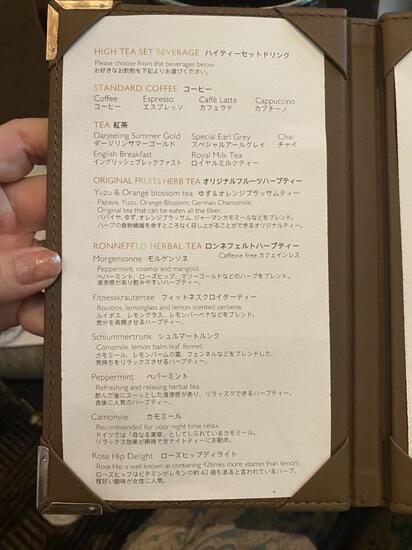 HIGH TEA SET BEVERAGE ハイティーセットドリンク
Please choose from the beverages below
お好きなお飲物を下記よりお選びください。
STANDARD COFFEE コーヒー
Coffee Espresso Caffè Latte Cappuccino
コーヒー エスプレッソ カフェラテ カプチーノ
TEA 紅茶
Darjeeling Summer Gold Special Earl Grey Chai
ダージリンサマーゴールド スペシャルアールグレイ チャイ
English Breakfast Royal Milk Tea
イングリッシュブレックファスト ロイヤルミルクティー
ORIGINAL FRUITS HERB TEA オリジナルフルーツハーブティー
Yuzu & Orange blossom tea ゆず&オレンジブラッサムティー
Papaya, Yuzu, Orange Blossom, German Chamomile.
Original tea that can be eaten all the fiber.
パパイヤ、ゆず、オレンジブラッサム、ジャーマンカモミールなどをブレンド。
ハーブの食物繊維を余すところなく召し上がることができるオリジナルティー。
RONNEFELD HERBAL TEA ロンネフェルトハーブティー
Caffeine free カフェインレス
Morgensonne モルゲンソネ
Peppermint, rosehip and marigold.
ペパーミント、ローズヒップ、マリーゴールドなどのハーブをブレンド。
清涼感があり飲みやすいハーブティー。
Fitnesskrautertee フィットネスクロイターティー
Rooibos, lemonglass and lemon scented verbena.
ルイボス、レモングラス、レモンバーベナなどをブレンド。
気分を高揚させるハーブティー。
Schlummertrunk シュルマートルンク
Comomile, lemon balm leaf, fennel.
カモミール、レモンバームの葉、フェンネルなどをブレンドした、
気持ちをリラックスさせるハーブティー。
Peppermint ペパーミント
Refreshing and relaxing herbal tea.
飲んだ後にスーッとした清涼感があり、リラックスできるハーブティー。
食後に人気のハーブティー。
Camomile カモミール
Recommended for your night time relax.
ドイツでは「母なる薬草」としてしられているカモミール。
リラックス効果が期待できナイトティーにお勧め。
Rose Hip Delight ローズヒップディライト
Rose Hip is well known as containing 42times more vitamin than lemon.
ローズヒップはビタミンがレモンの約 42 倍もあると言われているハーブ。
程好い酸味が女性に人気。